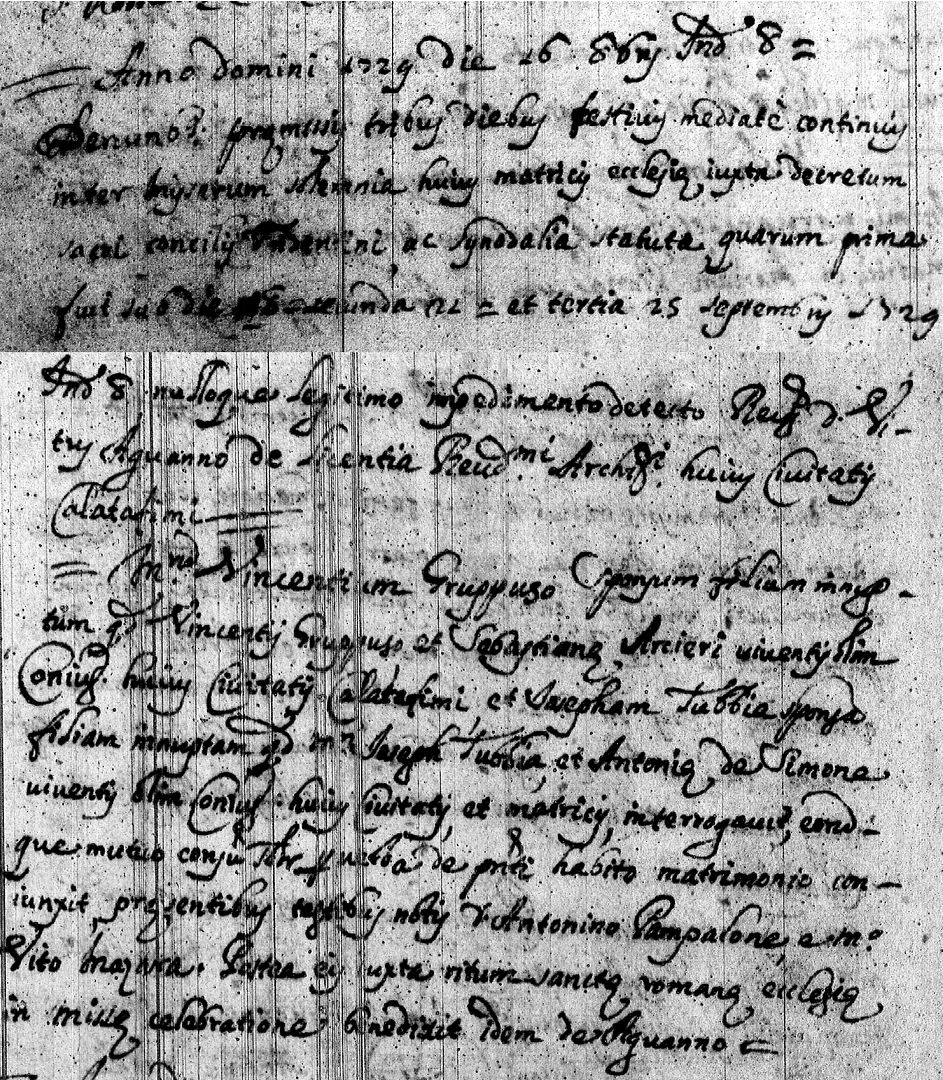 Anno domini 1729 die 16 8brÿs Ind.e 8 =
Denuno.s: premissis tribus diebus festivis mediate continuis
inter missarum solemnia huius matricis ecclesiæ iuxta decretum
sacri concilij Tridentini, ac synodalia statuta, quarum prima
fuit sub die 18 = secunda 21 = et tertia 25 septembris 1729
Ind.e 8 nulloque legitimo impedimento detecto Reuds D. Vi-
tus Aguanno de licentia Reud.mi Archip.ri huius Ciuitatis
Calatafimi
= Mrum Vincentium Gruppuso sponsum filium innup-
tum qd Vincentij Gruppuso et Sebastianæ Arcieri uiuentis olim
Coniug: huius Ciuitatis Calatafimi, et Iosepham Tubbia sponsã
filiam innuptam qd mri Ioseph Tubbia, et Antoniæ de Simone
uiuentis olim Coniug: huius Ciuitatis, et matricis, interrogauit, eorũ-
que mutuo consu p uerba de pñti habito matrimonio con-
iunxit, presentibus testibus notis D. Antonino Pampalone, e m.o
Vito Mazara. Postea eis iuxta ritum sanctæ romanæ ecclesiæ
in missæ celebratione benedixit idem de Aguanno =